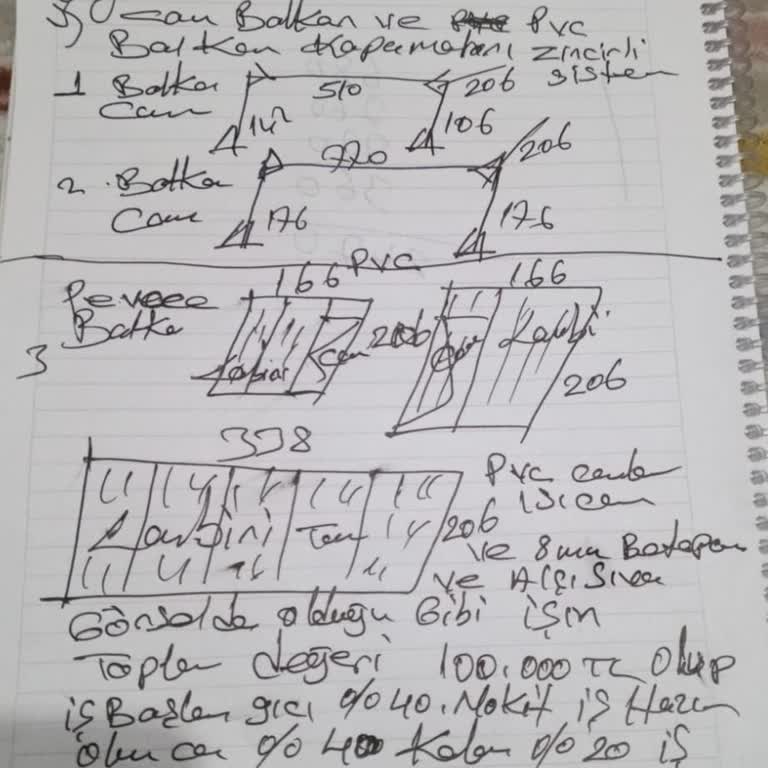 3) Cam Balkan ve Pvc
Balkon Kapamaları zincirli
sistem
1 Balkon 510 206
Cam 142 106
770 206
2. Balkon
Cam 176 176
Pvc
166 166
Balko 206
3 Cam
206
398
Pvc camlar
ısıcam
206
Lambiri Tam
ve 8mm
ve Alçı Sıva
Görselde olduğu Gibi işin
Toplam değeri 100.000 TL Olup
iş Başlangıcı %40. Nakit iş Hazır
Olunca %40 Kalan %20 iş